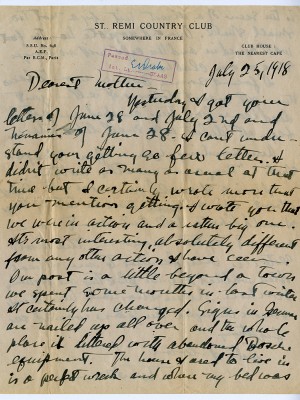 ST. REMI COUNTRY CLUB
SOMEWHERE IN FRANCE
Address
S.S.U. No. 646
A.E.F.
Par B.C.M., Paris
CLUB HOUSE:
THE NEAREST CAFÉ
Passed
July 25, 1918
Dearest Mother -
Yesterday I got your
letters of June 28 and July 2nd and
of June 28 - I can't under-
stand your getting so few letters. I
didn't write as many as usual at that
time but I certainly wrote more than
you mention getting - I wrote you that
we were in action and a rather big one.
It's most interesting, absolutely different
from any other action I have seen.
Our post is a little beyond a town
we spent some months in last winter
it certainly has changed. Signs in German
are nailed up all over and the whole
place is littered with abandoned Bosche
equipment. The house I used to live in
is a perfect wreck and where my bed was